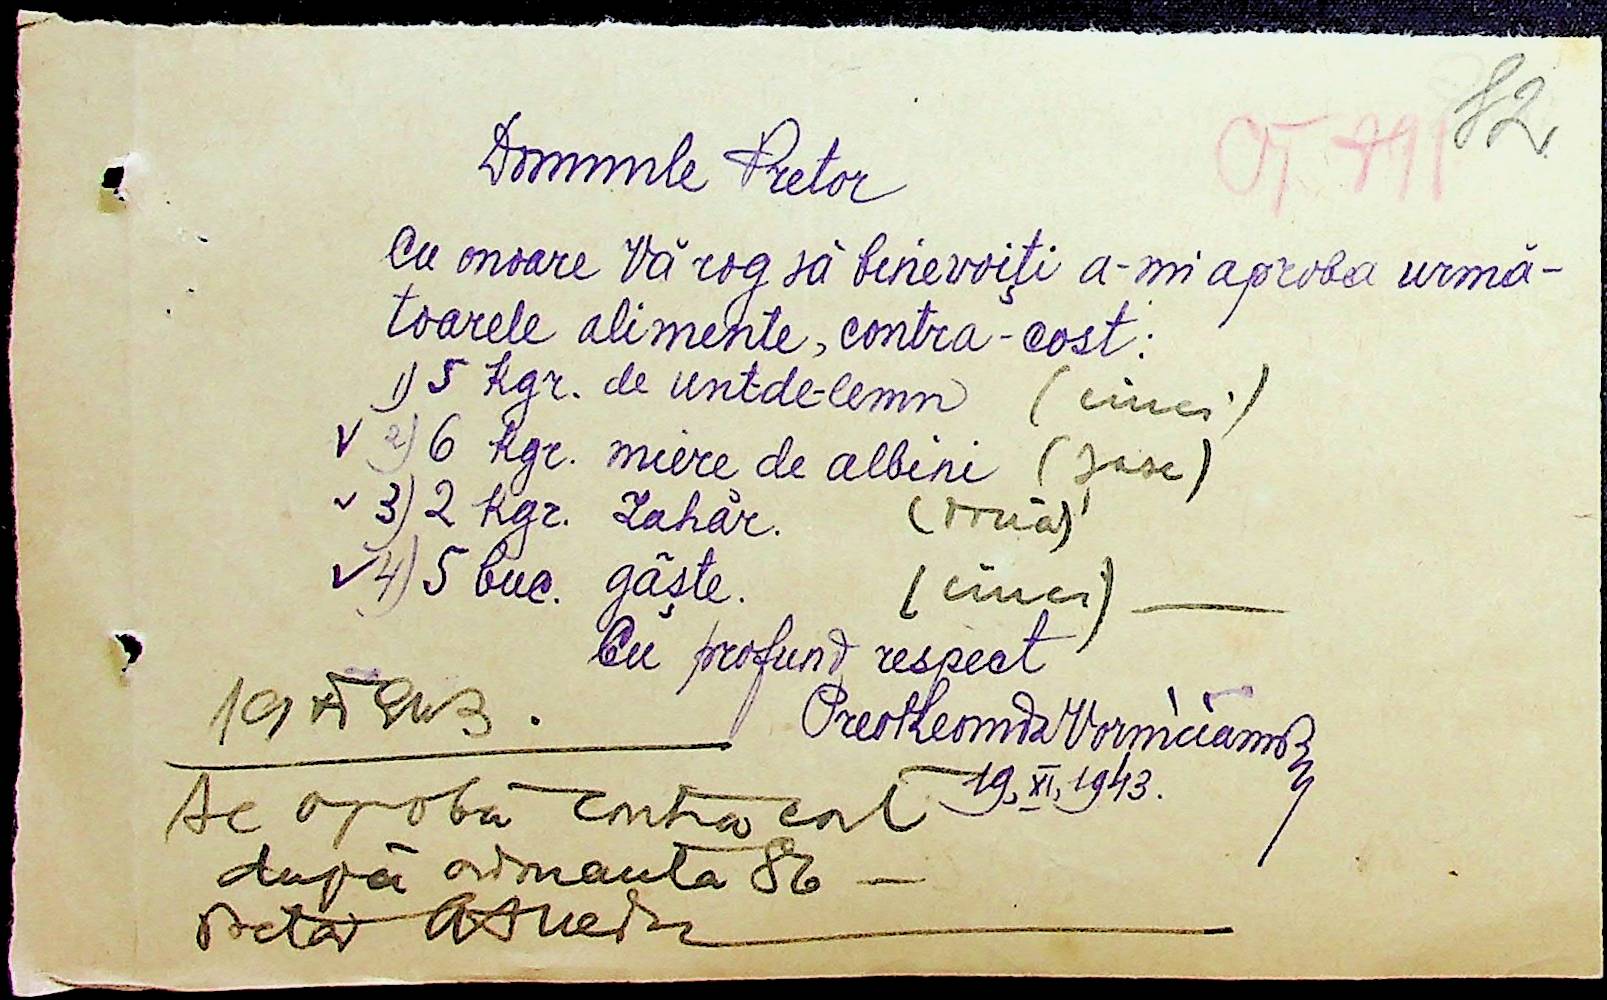 82.
Domnule Pretor
Cu onoare Vă rog să binevoiți a-mi aproba urmă-
toarele alimente, contra-cost:
1) 5 kgr. de unt-de-lemn (cinci)
V 2) 6 kgr. miere de albini (șase)
v 3) 2 kgr. Zahăr. (două)
v 4) 5 buc. gâște. (cinci)
Cu profund respect
19 XI 943.
19. XI. 1943.
Se aprobă contra cost
după ordonanta 86 —
Pretor